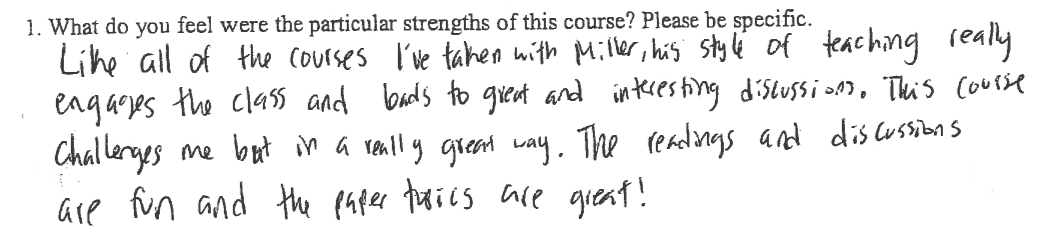 1. What do you feel were the particular strengths of this course? Please be specific.
Like all of the courses I've taken with Miller, his style of teaching really
engages the class and leads to great and interesting discussions. This course
challenges me but in a really great way. The readings and discussions
are fun and the paper topics are great!